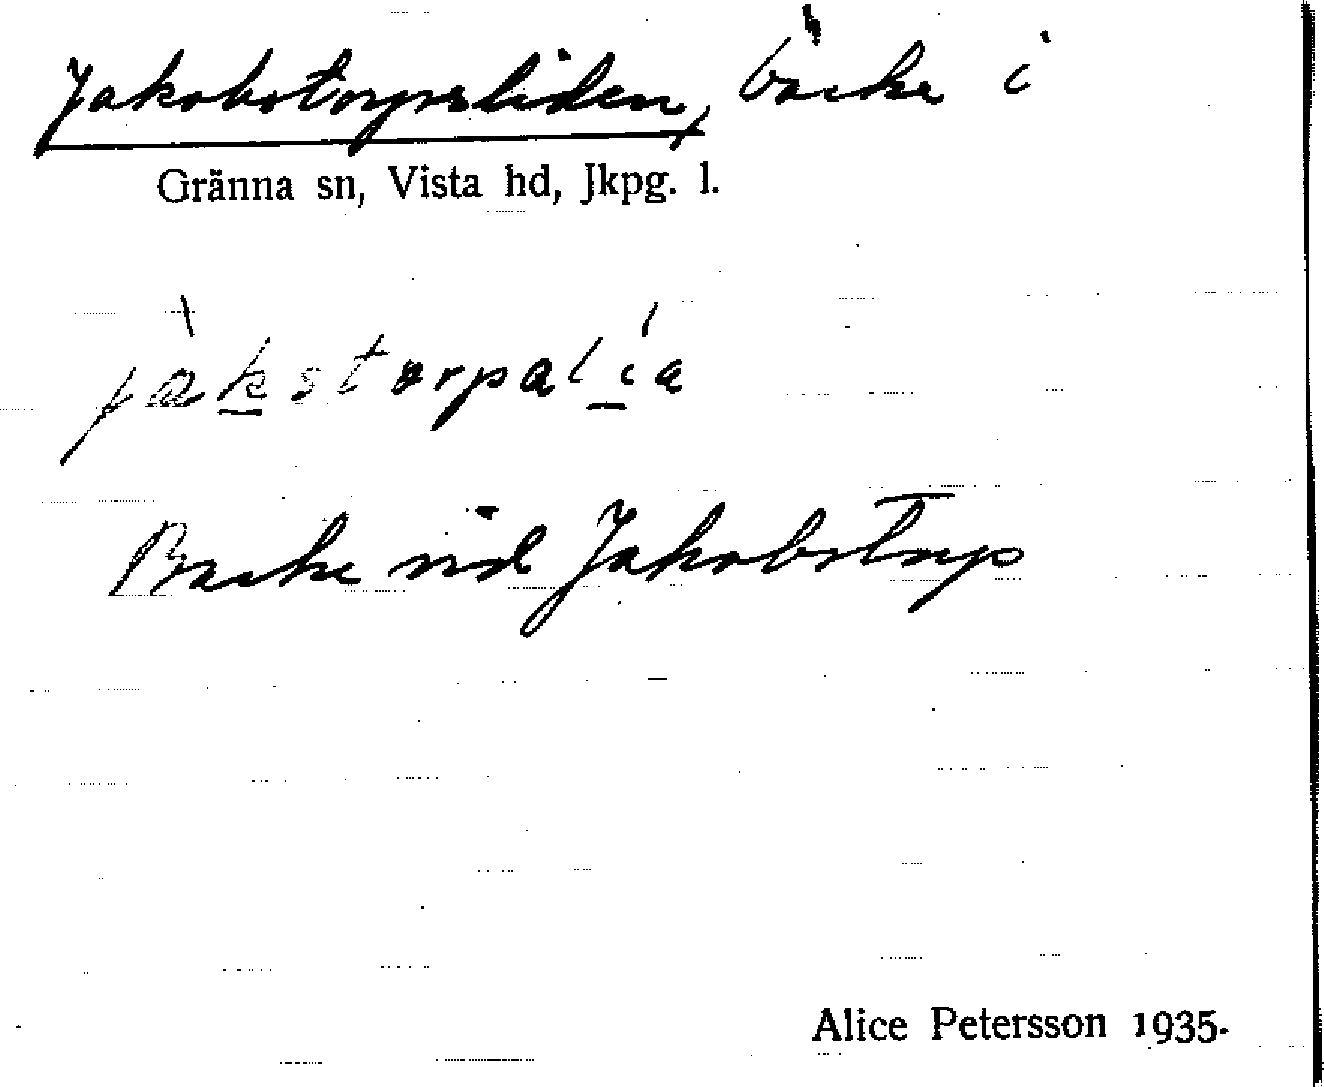 Jakobstorpsliden, backe i
Gränna sn, Vista hd, Jkpg. l.
jàkstorpalía
Backe vid Jakobstorp
Alice Petersson 1935.